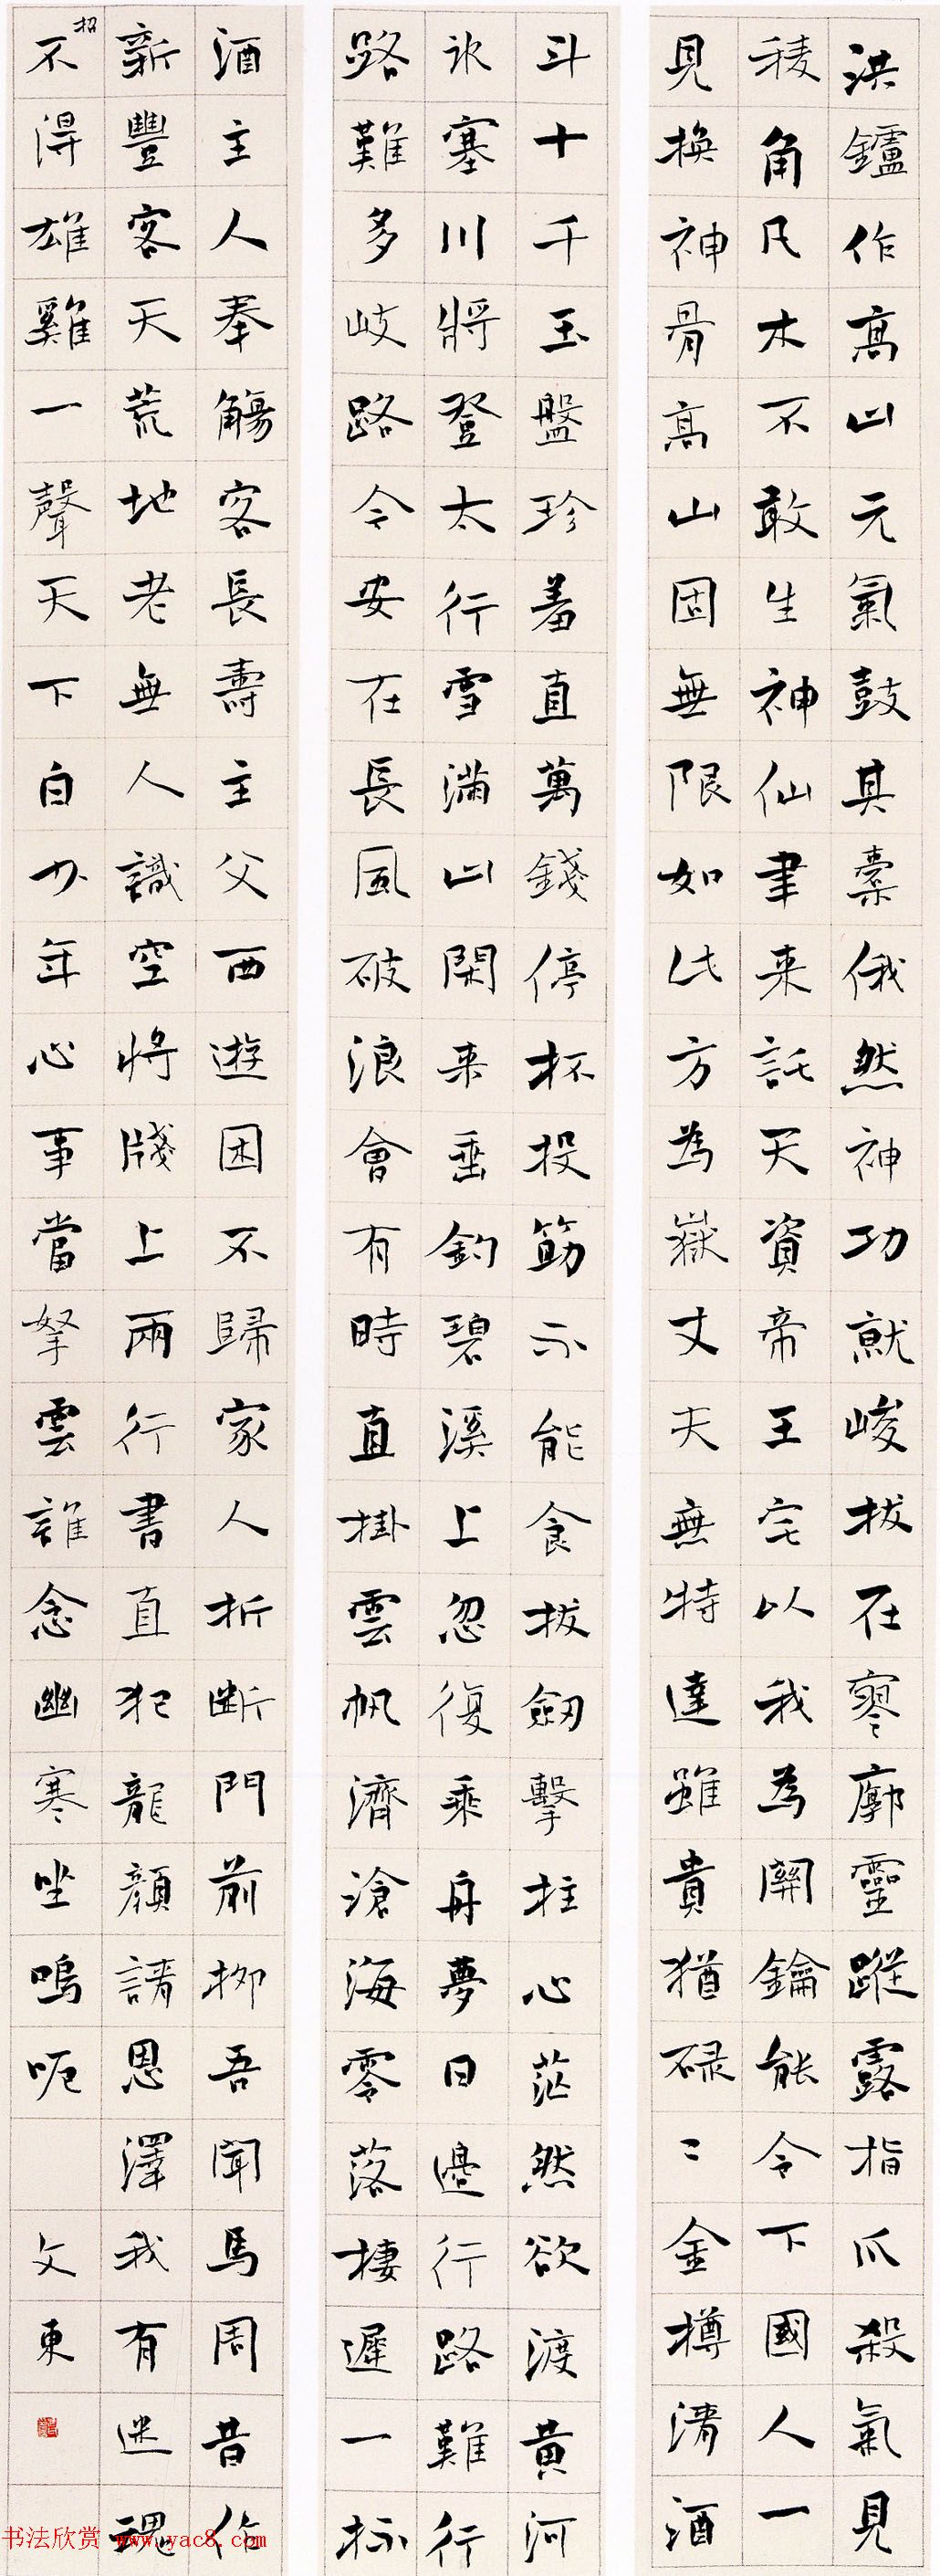 洪鑪作高山元氣鼓其橐俄然神功就峻拔在寥廓靈蹤露指爪殺氣見
稜角凡木不敢生神仙聿来託天資帝王宅以我為關鑰能令下國人一
見換神骨高山固無限如此方為嶽丈夫無特達雖貴猶碌〻金樽清酒
斗十千玉盤珍羞直萬錢停杯投筯不能食拔劔擊柱心茫然欲渡黄河
冰塞川將登太行雪滿山閑来垂釣碧溪上忽復乘舟夢日邊行路難行
路難多岐路今安在長風破浪會有時直掛雲帆濟滄海零落棲遲一杯
酒主人奉觴客長壽主父西遊困不歸家人折斷門前柳吾聞馬周昔作
新豐客天荒地老無人識空將牋上兩行書直犯龍顏請恩澤我有迷魂
招不得雄雞一聲天下白少年心事當拏雲誰念幽寒坐嗚呃 文東
书法欣赏 www.yac8.com